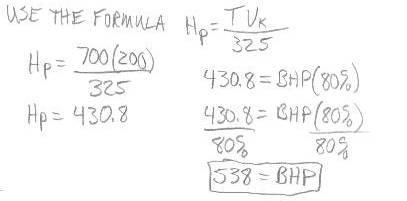 USE THE FORMULA Hp = TVK / 325
Hp = 700(200) / 325
Hp = 430.8
430.8 = BHP(80%)
430.8 / 80% = BHP(80%) / 80%
538 = BHP